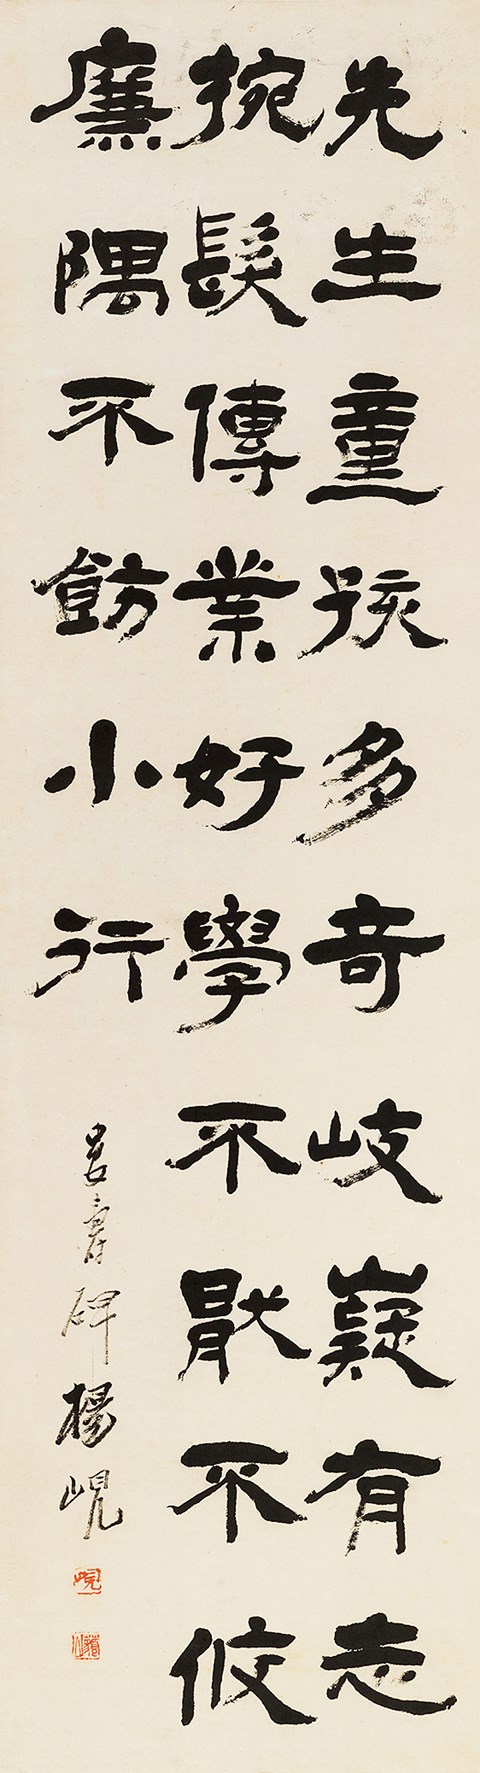 先生童孩多奇岐嶷有志
捥髮傳業好學不猒不攸
廉隅不飭小行
婁壽碑 楊峴